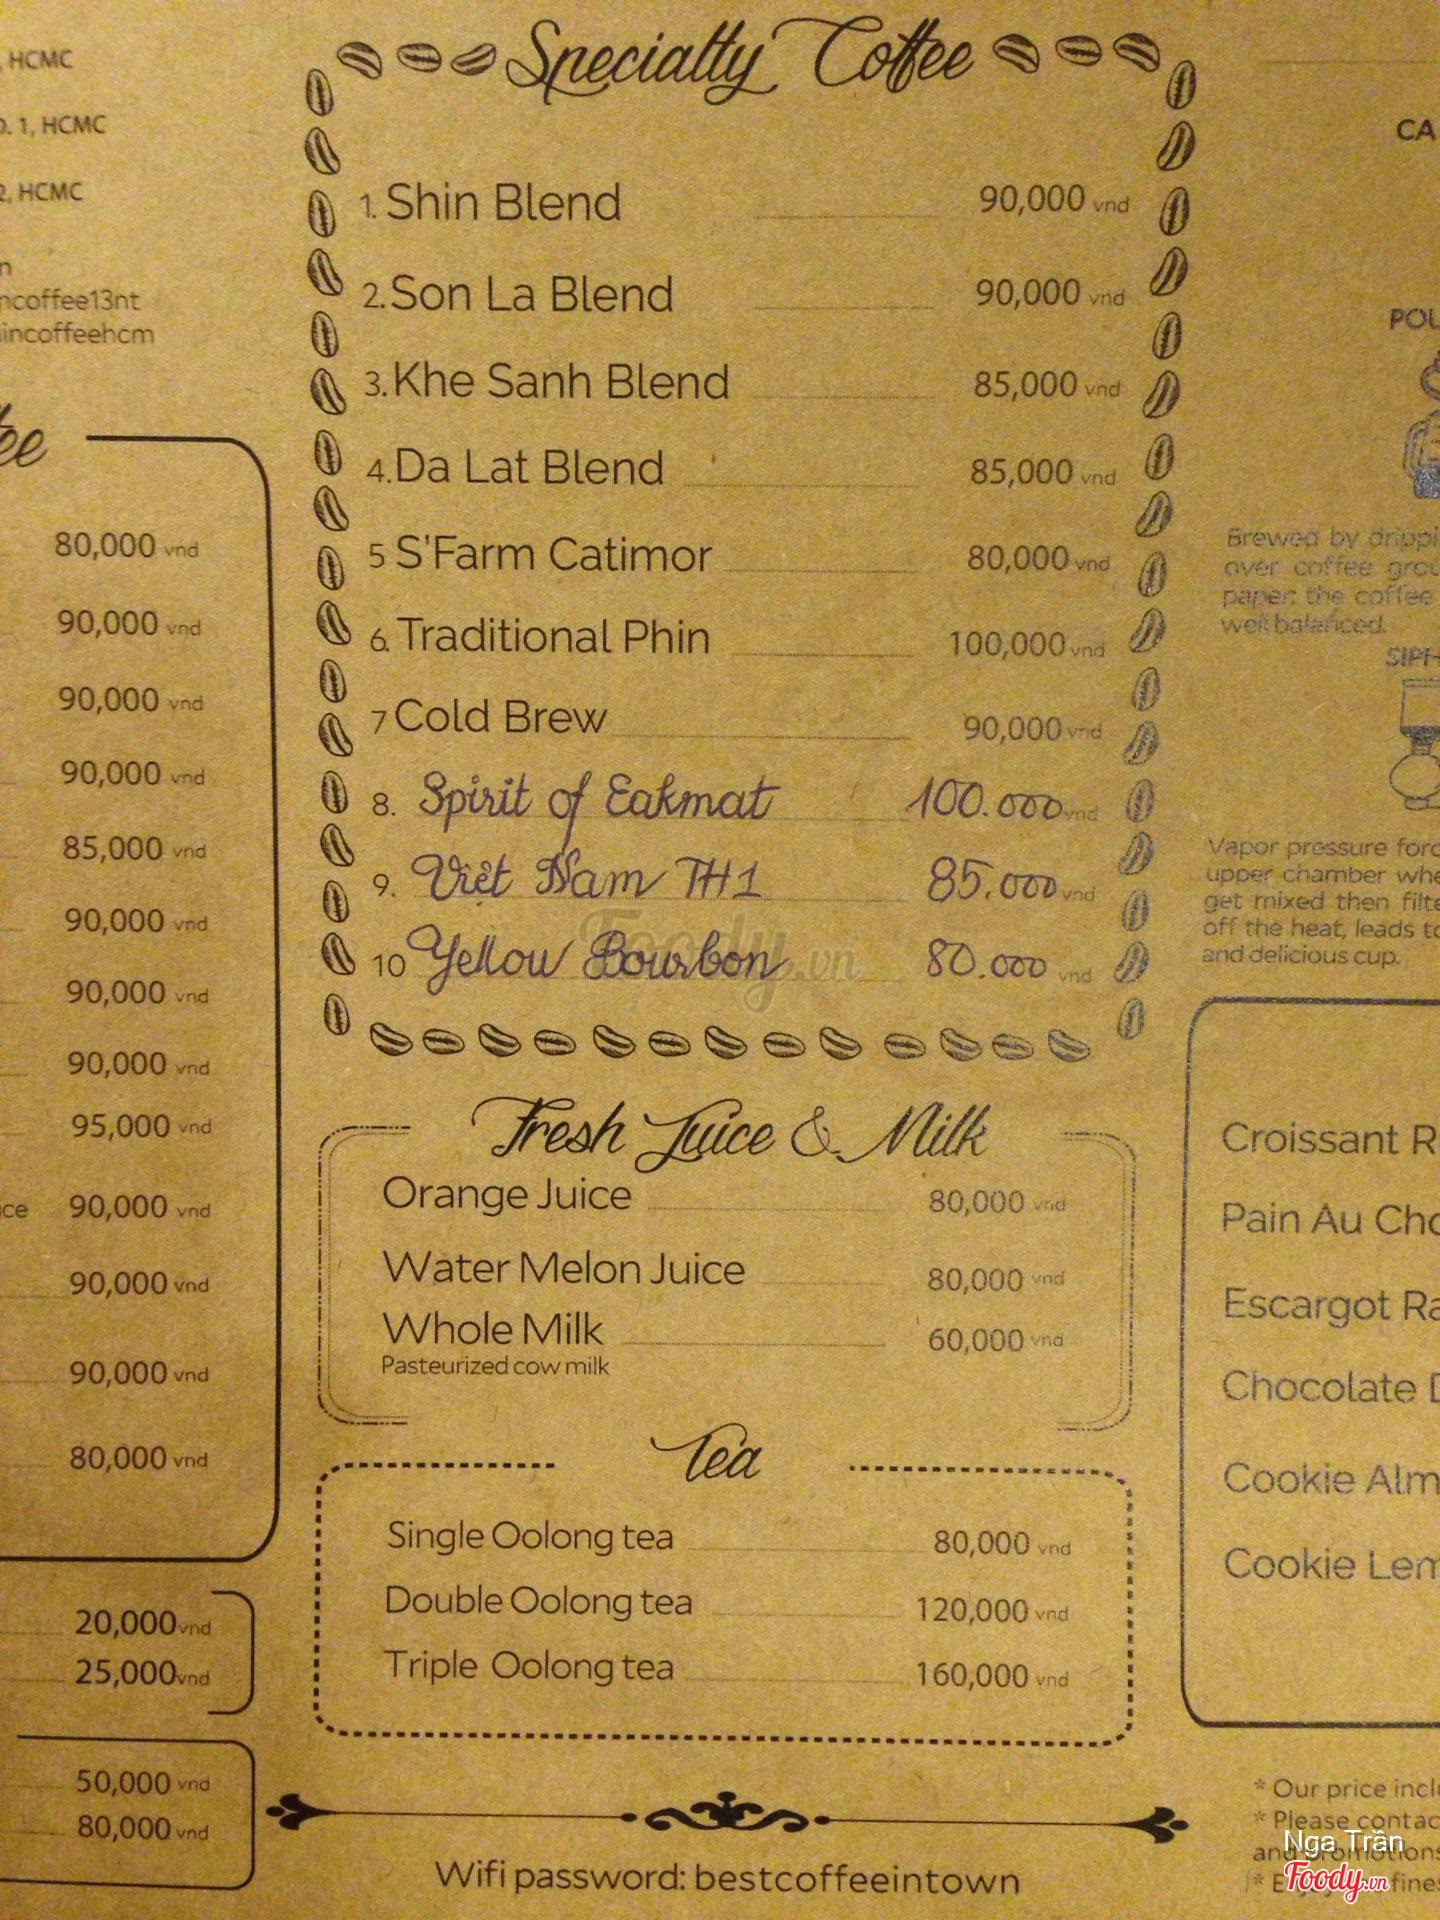 , HCMC
D. 1, HCMC
2, HCMC
ncoffee13nt
incoffeehcm
80,000 vnd
90,000 vnd
90,000 vnd
90,000 vnd
85,000 vnd
90,000 vnd
90,000 vnd
90,000 vnd
95,000 vnd
90,000 vnd
90,000 vnd
90,000 vnd
80,000 vnd
20,000 vnd
25,000 vnd
50,000 vnd
80,000 vnd
Specialty Coffee
1. Shin Blend 90,000 vnd
2. Son La Blend 90,000 vnd
3. Khe Sanh Blend 85,000 vnd
4. Da Lat Blend 85,000 vnd
5 S'Farm Catimor 80,000 vnd
6. Traditional Phin 100,000 vnd
7 Cold Brew 90,000 vnd
8. Spirit of Eakmat 100.000 vnd
9. Việt Nam TH1 85.000 vnd
10 Yellow Bourbon 80.000 vnd
Foody.vn
Fresh Juice & Milk
Orange Juice 80,000 vnd
Water Melon Juice 80,000 vnd
Whole Milk 60,000 vnd
Pasteurized cow milk
Tea
Single Oolong tea 80,000 vnd
Double Oolong tea 120,000 vnd
Triple Oolong tea 160,000 vnd
Wifi password: bestcoffeeintown
CA
POU
Brewed by drippi
over coffee grou
paper: the coffee
well balanced.
SIPH
Vapor pressure forc
upper chamber whe
get mixed then filte
off the heat, leads to
and delicious cup.
Croissant R
Pain Au Cho
Escargot Ra
Chocolate D
Cookie Alm
Cookie Lem
* Our price incl
* Please contac
and promotions
Nga Trần
Foody.vn